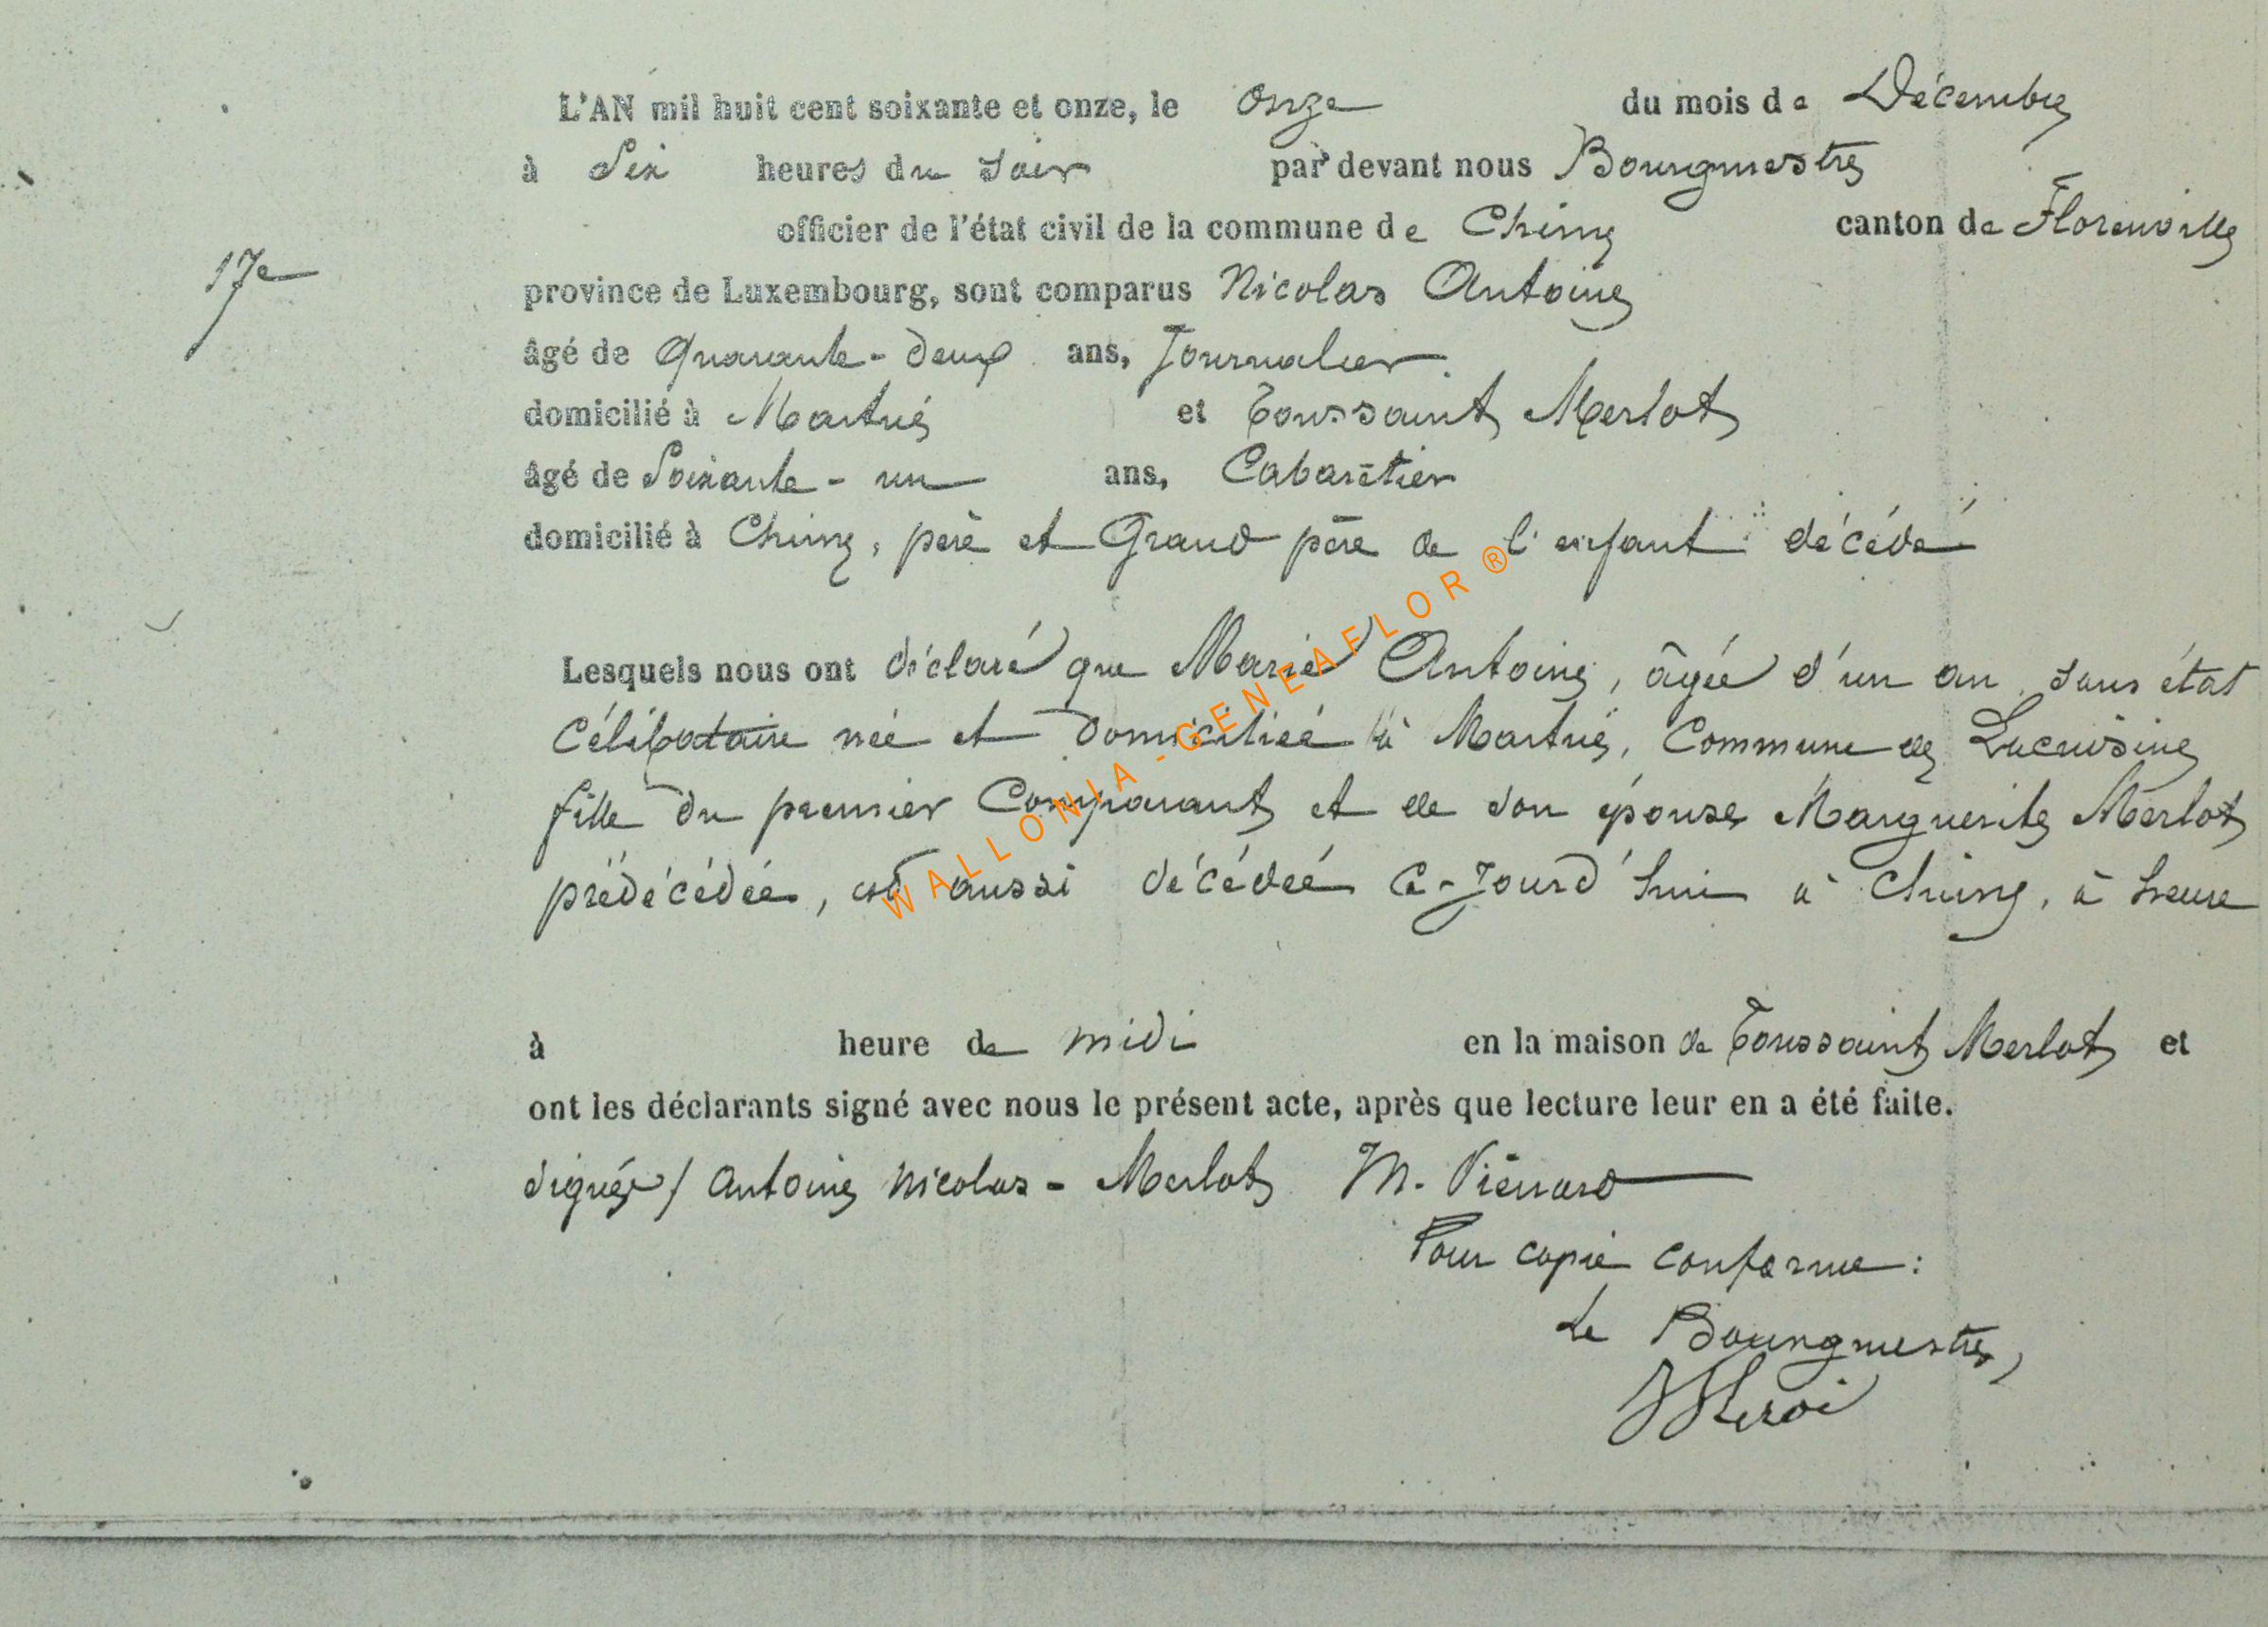 L'AN mil huit cent soixante et onze, le onze du mois de Décembre
à Six heures du Soir par devant nous Bourgmestre
officier de l'état civil de la commune de Chiny canton de Florenville
17e
province de Luxembourg, sont comparus Nicolas Antoine
âgé de Quarante-deux ans, Journalier
domicilié à Martué et Toussaint Merlot
âgé de Soixante-un ans, Cabaretier
domicilié à Chiny, père et Grand père de l'enfant décédé
Lesquels nous ont déclaré que Marie Antoine, âgée d'un an, sans état
Célibataire née et domiciliée à Martué, Commune de Lacuisine
fille du premier Comparant et de son épouse Marguerite Merlot
prédécédée, est aussi décédée Ce-Jourd'hui à Chiny, à heure
à heure de midi en la maison de Toussaint Merlot et
ont les déclarants signé avec nous le présent acte, après que lecture leur en a été faite.
Signés/ Antoine Nicolas - Merlot M. Piérard
Pour copie conforme :
Le Bourgmestre,
WALLONIA-GENEAFLOR®